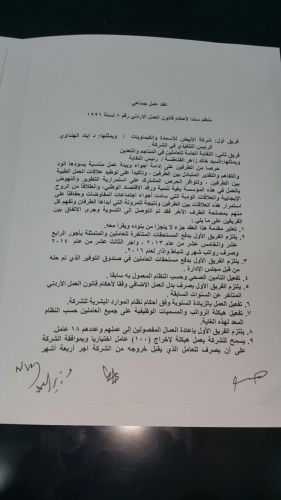 عقد عمل جماعي
منظم سندا لاحكام قانون العمل الاردني رقم ٨ لسنة ١٩٩٦
فريق أول: شركة الأبيض للأسمدة والكيماويات / ويمثلها: د اياد الهنداوي
الرئيس التنفيذي في الشركة.
فريق ثاني: النقابة العامة للعاملين في المناجم والتعدين
ويمثلها:السيد خالد زاهر الفناطسة / رئيس النقابة
حرصا من الطرفين على إدامة أجواء وبيئة عمل مناسبة يسودها الود
والتفاهم والتقدير المتبادل بين الطرفين ، وتأكيدا على توطيد علاقات العمل الطيبة
بين الطرفين ، ولتوافر الحرص المشترك على استمرارية التطوير والنهوض
والعمل في هذه المؤسسة بغية تنمية ورفد الاقتصاد الوطني، وانطلاقا من الروح
الايجابية والعلاقات الودية التي سادت أجواء اجتماعات المفاوضات وحفاظا على
استمرار هذه العلاقات بين الطرفين ونتيجة للمرونة التي أبداها الطرفان وتفهم كل
منهم بمصلحة الطرف الآخر فقد تم التوصل إلى التسوية وجرى الاتفاق بين
الفريقين على ما يلي :
١. تعتبر مقدمة هذا العقد جزء لا يتجزأ من بنوده ويقرأ معه.
٢. يلتزم الفريق الأول بدفع المستحقات المتأخرة للعاملين والمتمثلة بأجور الرابع
عشر والخامس عشر من عام ٢٠١٣ ، واجر الثالث عشر من عام ٢٠١٤
وصرف رواتب شهري شباط وآذار لعام ٢٠١٦.
٣. يلتزم الفريق الأول بدفع مستحقات العاملين في صندوق التوفير الذي تم حله
من قبل مجلس الإدارة .
٤. تفعيل التامين الصحي وحسب النظام المعمول به سابقا .
٥. يلتزم الفريق الأول بصرف بدل العمل الإضافي وفقا لأحكام قانون العمل الاردني
المتأخر عن السنوات السابقة .
٦. تفعيل العمل بالزيادة السنوية وفق أحكام نظام الموارد البشرية للشركة.
٧. تفعيل هيكلة الرواتب والمسميات الوظيفية على جميع العاملين حسب النظام
المعد لهذه الغاية.
٨. يلتزم الفريق الأول بإعادة العمال المفصولين إلى عملهم وعددهم ١٨ عامل.
٩. يسمح للشركة بعمل هيكلة لإخراج (١٠٠) عامل اختياريا وبموافقة الشركة
على أن يصرف للعامل الذي يقبل خروجه من الشركة اجر أربعة أشهر